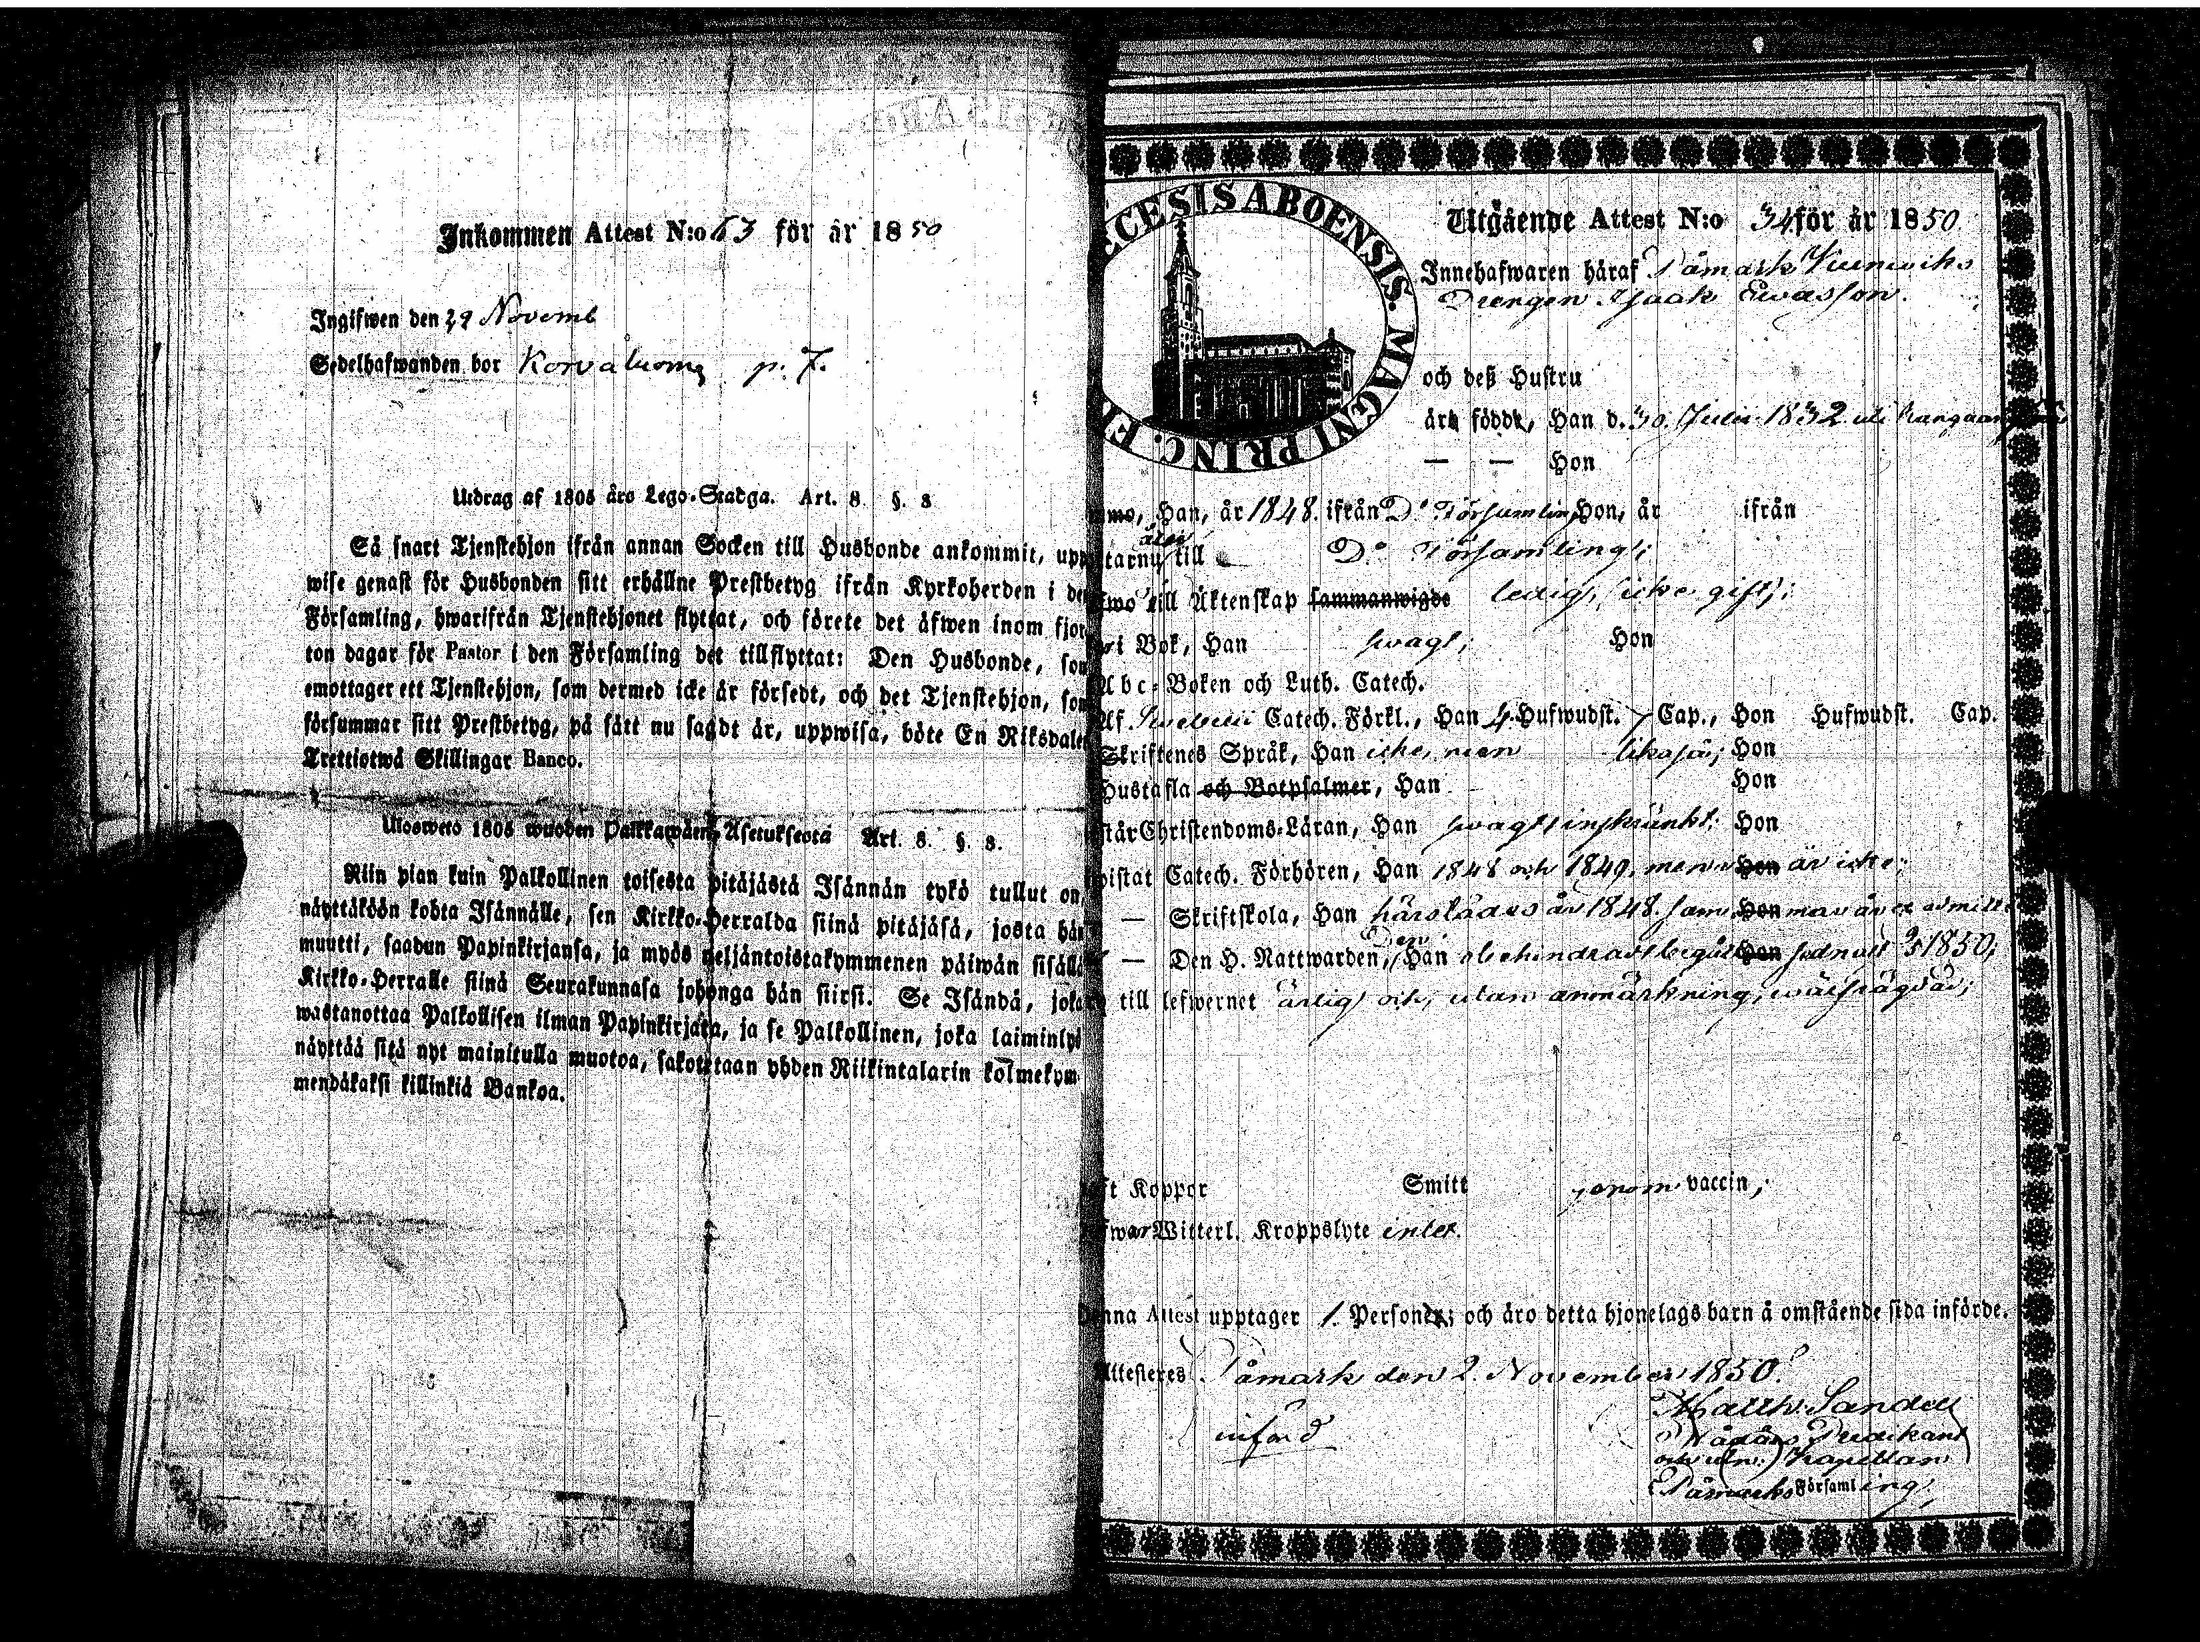 Inkommen Attest N:o 63 för år 1850
Ingifwen den 29 Novemb
Sedelhafwanden bor Korvaluoma p. 7.
Utdrag af 1805 års Lego-Stadga. Art. 8. §. 8
Så snart Tjenstehjon ifrån annan Socken till Husbonde ankommit, upp
wise genast för Husbonden sitt erhållne Prestbetyg ifrån Kyrkoherden i de
Församling, hwarifrån Tjenstehjonet flyttat, och förete det äfwen inom fjor
ton dagar för Pastor i den Församling det tillflyttat: Den Husbonde, som
emottager ett Tjenstehjon, som dermed icke är försedt, och det Tjenstehjon, som
försummar sitt Prestbetyg, på sätt nu sagdt är, uppwisa, böte En Riksdaler
Trettiotwå Skillingar Banco.
Ulosweto 1805 wuoden Palkkawäen Asetuksesta Art. 8. §. 8.
Niin pian kuin Palkollinen toisesta pitäjästä Isännän tykö tullut on,
näyttäköön kohta Isännälle, sen Kirkko-Herralda siinä pitäjäsä, josta hän
muutti, saadun Papinkirjansa, ja myös neljäntoistakymmenen päiwän sisällä
Kirkko-Herralle siinä Seurakunnasa johonga hän siirsi. Se Isändä, joka
wastanottaa Palkollisen ilman Papinkirjata, ja se Palkollinen, joka laiminlyö
näyttää sitä nyt mainitulla muotoa, sakotetaan yhden Riikintalarin kolmekym
mendäkaksi killinkiä Bankoa.
ECESIS ABOENSIS. MAGNI PRINC. FI
Utgående Attest N:o 34 för år 1850
Innehafwaren häraf Påmark
Drengen Isaak Evasson.
och deß Hustru
är född, Han d. 30 Julii 1832 uti
— — Hon
mo, Han, år 1848. ifrån D:o Församling Hon, år ifrån
åter
tarnu till D:o Församling;
wo till Äktenskap sammanwigde ledig, icke gift;
ri Bok, Han swagt; Hon
Abc-Boken och Luth. Catech.
Af Catech. Förkl., Han 4. Hufwudst. Cap., Hon Hufwudst. Cap.
Skriftenes Språk, Han icke, men likaså; Hon
Hustafla och Botpsalmer, Han Hon
står Christendoms-Läran, Han swagt, inskränkt; Hon
istat Catech. Förhören, Han 1848 och 1849, men Hon är icke;
— Skriftskola, Han år 1848. Hon
— Den H. Nattwarden, Han obehindradt begått Hon 1850;
till lefwernet ärlig och, utan anmärkning, wälfrägdad;
ft Koppor Smitt genom vaccin;
fwar Witterl. Kroppslyte intet.
Denna Attest upptager 1. Personer; och äro detta hjonelags barn å omstående sida införde.
Attesteres Påmark den 2. November 1850.
införd
Matth. Sandell
Nådårs Predikant
och Kapellan
Påmarks Församling,